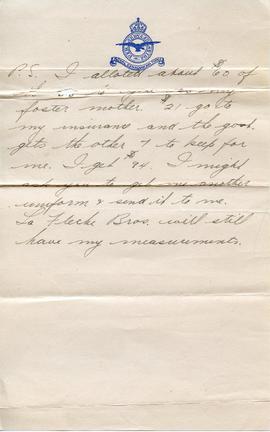 P.S. I alloted about $60 of
my
foster mother $21 go to
my insurance and the govt.
gets the other 7 to keep for
me. I get $94. I might
ask you to get me another
uniform & send it to me.
La Fleche Bros. will still
have my measurements.